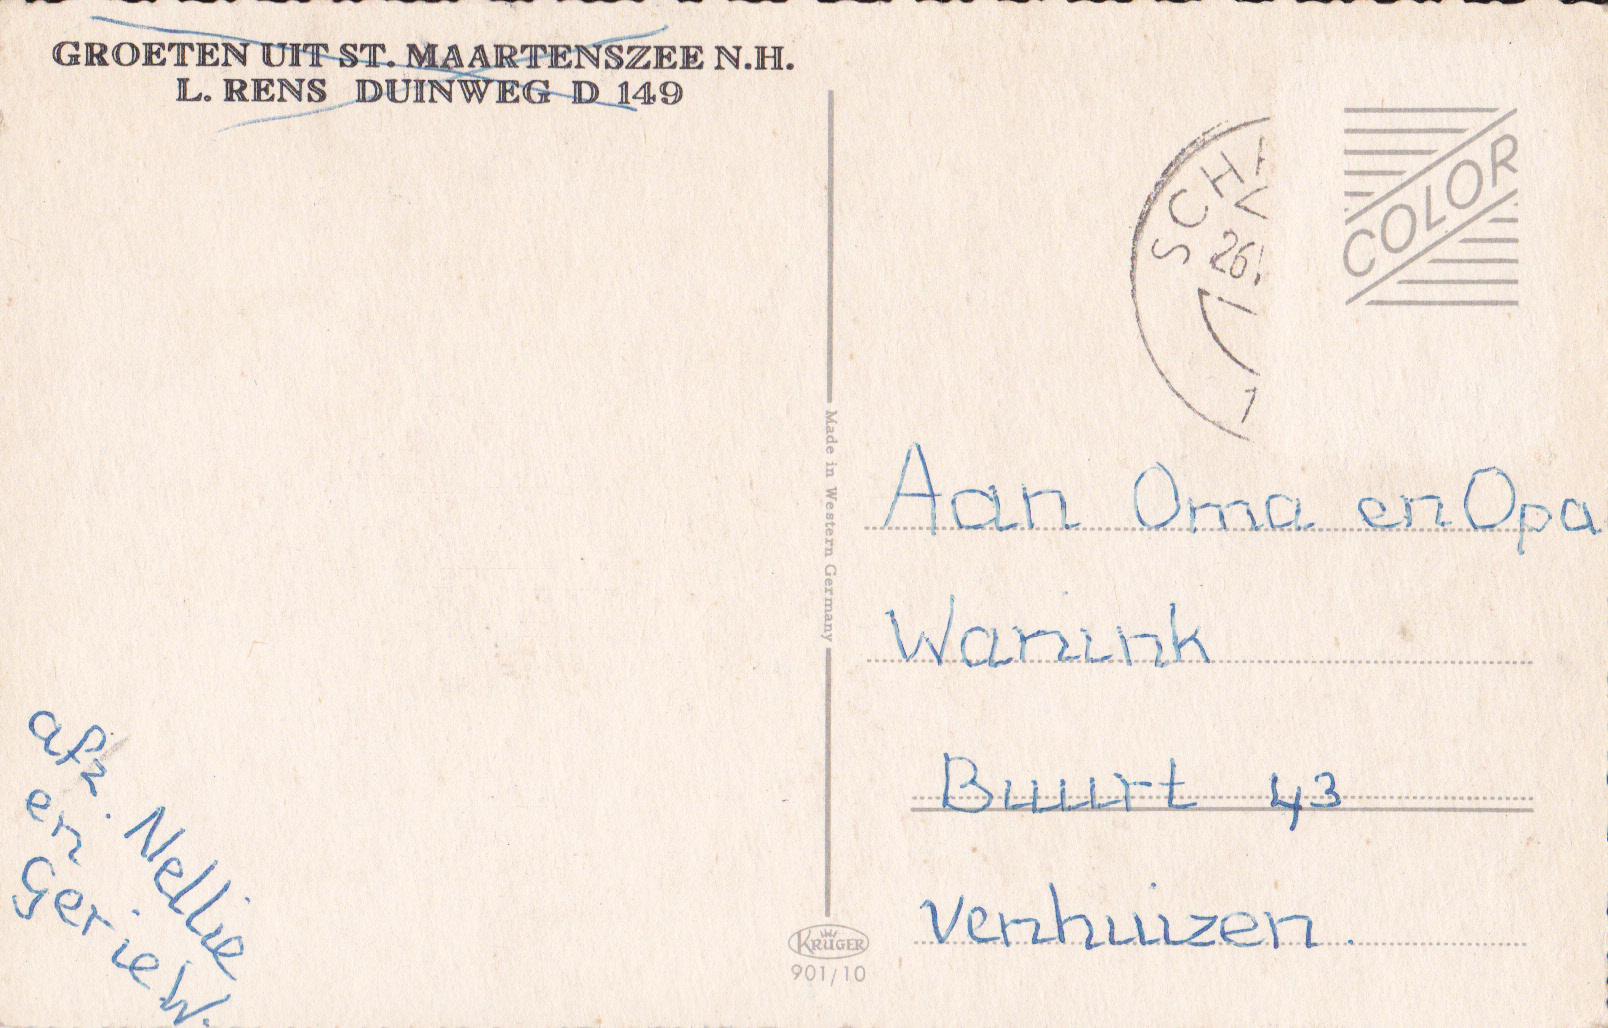 GROETEN UIT ST. MAARTENSZEE N.H.
L. RENS DUINWEG D 149
SCHA
26
1
COLOR
Made in Western Germany
Aan Oma en Opa
Wanink
Buurt 43
Venhuizen.
afz. Nellie
en
Gerie W.
KRÜGER
901/10